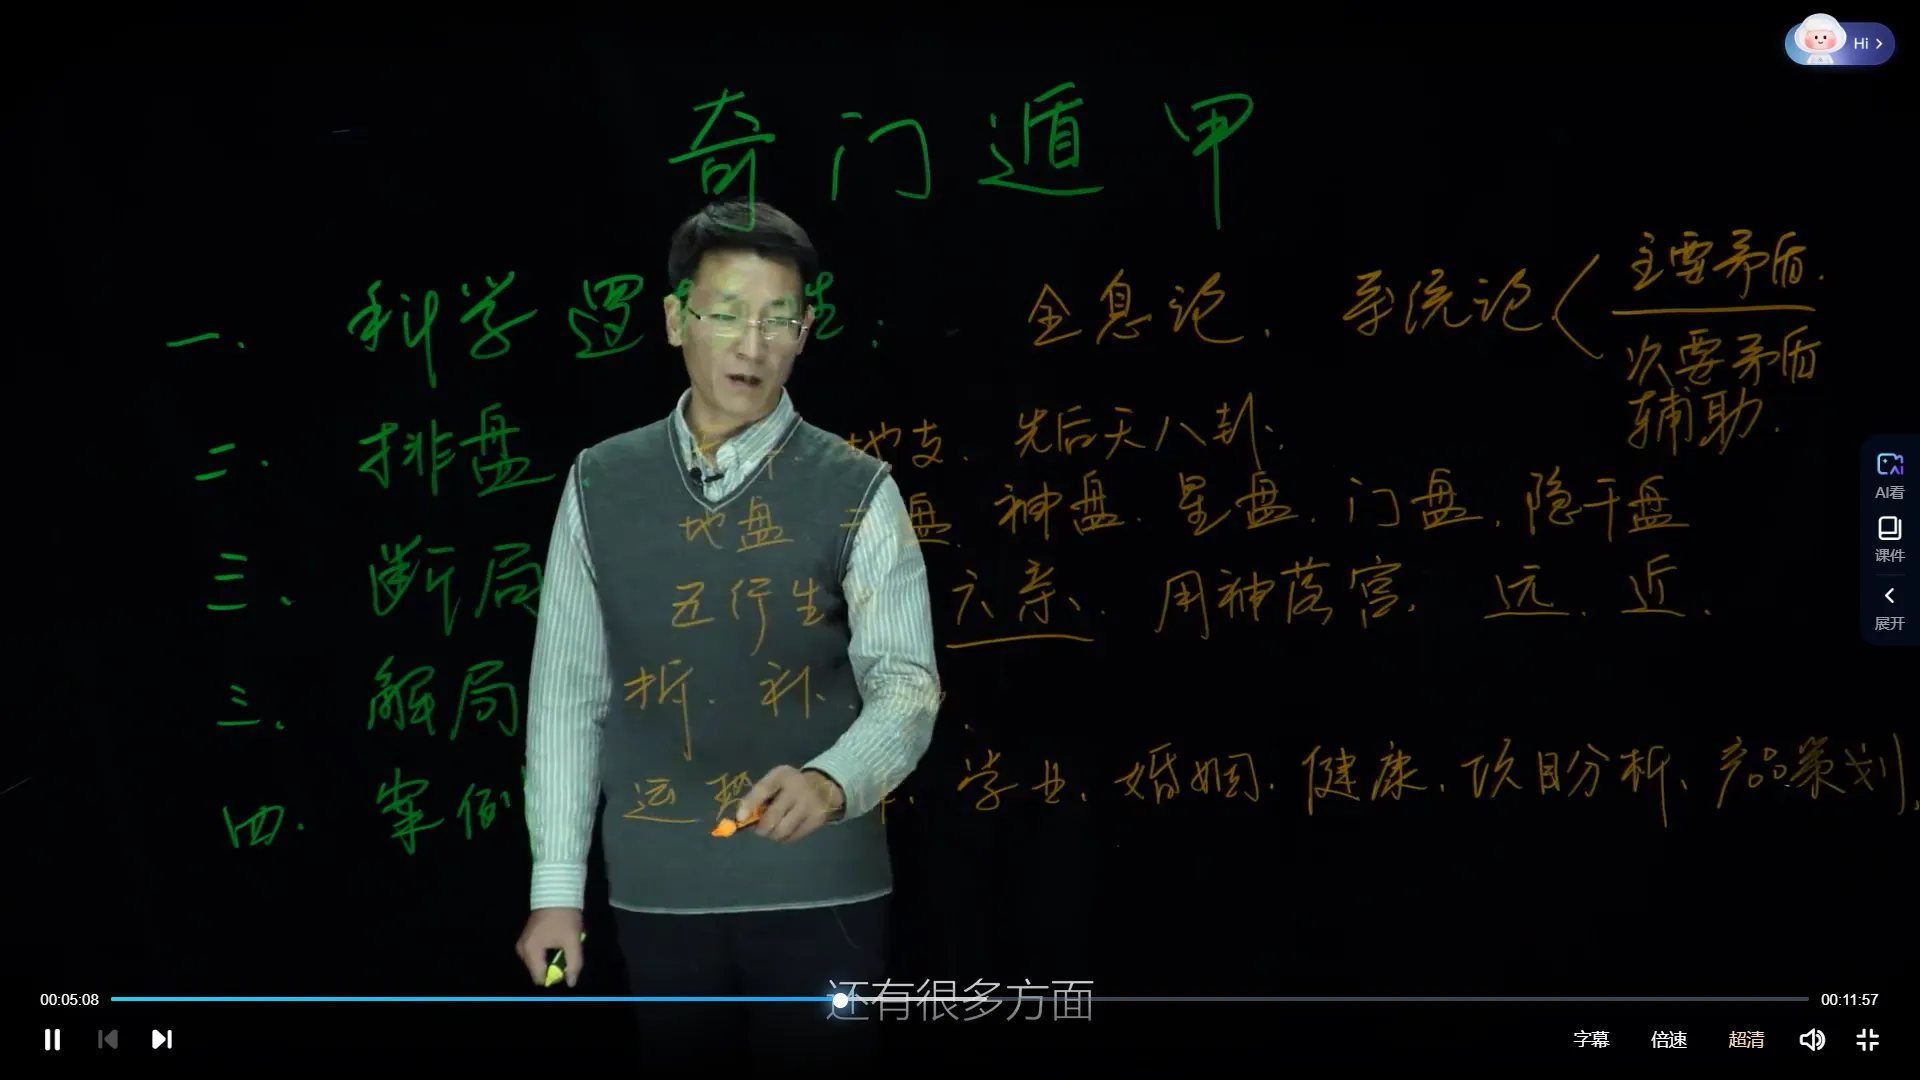 Hi
奇门遁甲
一. 科学逻 性: 全息论. 系统论 主要矛盾.
次要矛盾
辅助.
二. 排盘: 干. 地支. 先后天八卦.
地盘 盘. 神盘. 星盘. 门盘. 隐干盘
三. 断局 五行生 六亲. 用神落宫. 远. 近.
三. 解局 拆. 补.
四. 案例 运势 学业. 婚姻. 健康. 项目分析. 产品策划.
AI看
课件
展开
还有很多方面
00:05:08
00:11:57
字幕 倍速 超清